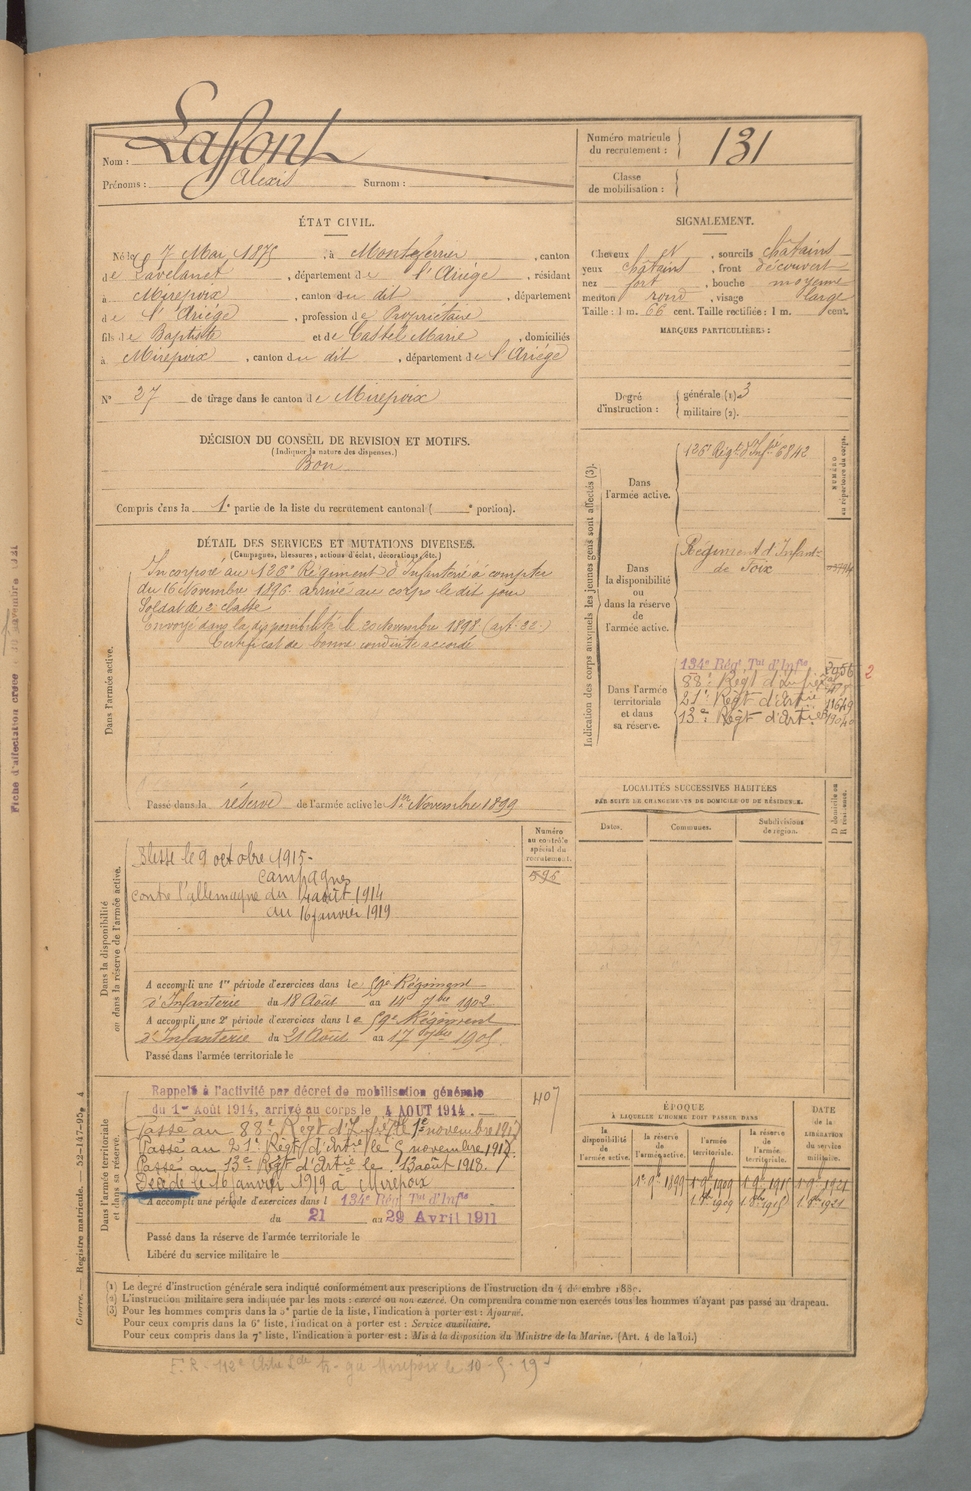 Nom : Laffont
Prénoms : Alexis Surnom :
Numéro matricule du recrutement : 131
Classe de mobilisation :
ÉTAT CIVIL.
Né le 7 Mai 1875, à Montferrier, canton
de Lavelanet, département de l'Ariège, résidant
à Mirepoix, canton du dit, département
de l'Ariège, profession de Propriétaire
fils de Baptiste et de Castel Marie, domiciliés
à Mirepoix, canton du dit, département de l'Ariège
N° 27 de tirage dans le canton de Mirepoix
DÉCISION DU CONSEIL DE REVISION ET MOTIFS.
(Indiquer la nature des dispenses.)
Bon
Compris dans la 1e partie de la liste du recrutement cantonal ( e portion).
SIGNALEMENT.
Cheveux N, sourcils châtains
yeux châtains, front découvert
nez fort, bouche moyenne
menton rond, visage large
Taille : 1 m. 66 cent. Taille rectifiée : 1 m. cent.
MARQUES PARTICULIÈRES :
Degré d'instruction : générale (1) 3
militaire (2).
DÉTAIL DES SERVICES ET MUTATIONS DIVERSES.
(Campagnes, blessures, actions d'éclat, décorations, etc.)
Dans l'armée active.
Incorporé au 126e Régiment d'Infanterie à compter
du 16 Novembre 1896 arrivé au corps le dit jour
Soldat de 2e classe
Envoyé dans la disponibilité le 20 Novembre 1898 (art. 22)
Certificat de bonne conduite accordé
Passé dans la réserve de l'armée active le 1er Novembre 1899
Indication des corps auxquels les jeunes gens sont affectés (3).
NUMÉRO au répertoire du corps.
Dans l'armée active.
126e Régt d'Infie 6842
Dans la disponibilité ou dans la réserve de l'armée active.
Régiment d'Infant-
de Foix
Dans l'armée territoriale et dans sa réserve.
134e Régt Tal d'Infie
88e Régt d'Infie
21e Régt d'Artie
13e Régt d'Artie
2
LOCALITÉS SUCCESSIVES HABITÉES
PAR SUITE DE CHANGEMENTS DE DOMICILE OU DE RÉSIDENCE.
Dates. Communes. Subdivisions de région. D domicile ou R résidence.
Dans la disponibilité ou dans la réserve de l'armée active.
Numéro au contrôle spécial du recrutement.
595
Blessé le 9 octobre 1915-
Campagnes
contre l'allemagne du 4 août 1914
au 16 janvier 1919
A accompli une 1re période d'exercices dans le 59e Régiment
d'Infanterie du 18 Août au 14 7bre 1902
A accompli une 2e période d'exercices dans le 59e Régiment
d'Infanterie du 21 Août au 17 7bre 1905
Passé dans l'armée territoriale le
Dans l'armée territoriale et dans sa réserve.
407
Rappelé à l'activité par décret de mobilisation générale
du 1er Août 1914, arrivé au corps le 4 AOUT 1914.
Passé au 88e Régt d'Infie le 1e novembre 1917
Passé au 21e Régt d'Artie le 5 novembre 1917.
Passé au 13e Régt d'Artie le 13 août 1918.
Décédé le 16 janvier 1919 à Mirepoix
A accompli une période d'exercices dans l 134e Régt Tal d'Infie
du 21 au 29 Avril 1911
Passé dans la réserve de l'armée territoriale le
Libéré du service militaire le
ÉPOQUE
À LAQUELLE L'HOMME DOIT PASSER DANS
la disponibilité de l'armée active. la réserve de l'armée active. l'armée territoriale. la réserve de l'armée territoriale. DATE de la LIBÉRATION du service militaire.
(1) Le degré d'instruction générale sera indiqué conformément aux prescriptions de l'instruction du 4 décembre 1889.
(2) L'instruction militaire sera indiquée par les mots : exercé ou non exercé. On comprendra comme non exercés tous les hommes n'ayant pas passé au drapeau.
(3) Pour les hommes compris dans la 5e partie de la liste, l'indication à porter est : Ajourné.
Pour ceux compris dans la 6e liste, l'indication à porter est : Service auxiliaire.
Pour ceux compris dans la 7e liste, l'indication à porter est : Mis à la disposition du Ministre de la Marine. (Art. 4 de la loi.)
Guerre. — Registre matricule. — 52-147-95. 4